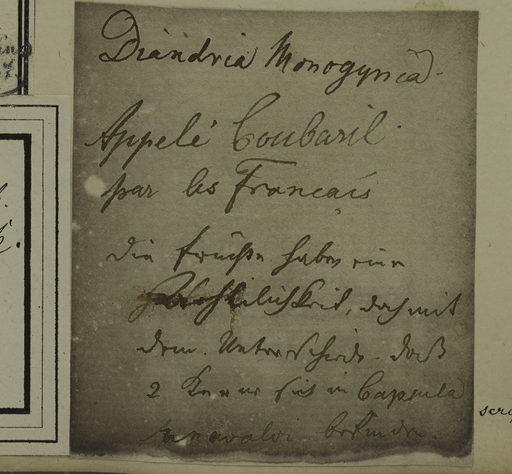 Diandria Monogynia.
Appelé Coubaril
par les Francais
die früchte haben eine
Aehnlichkeit, doch mit
dem Unterschiede daß
2 Kerne sich in Capsula
befinden.